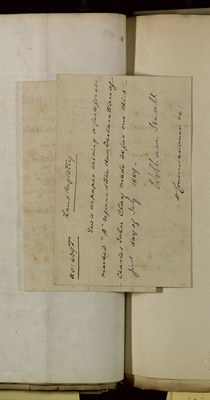 Land Registry
No: 6395.
This is the paper writing
marked "A" referred to in the Declaration of
Charles John Clay made before me this
first day of July 1889.
William Small
A Commissioner &c